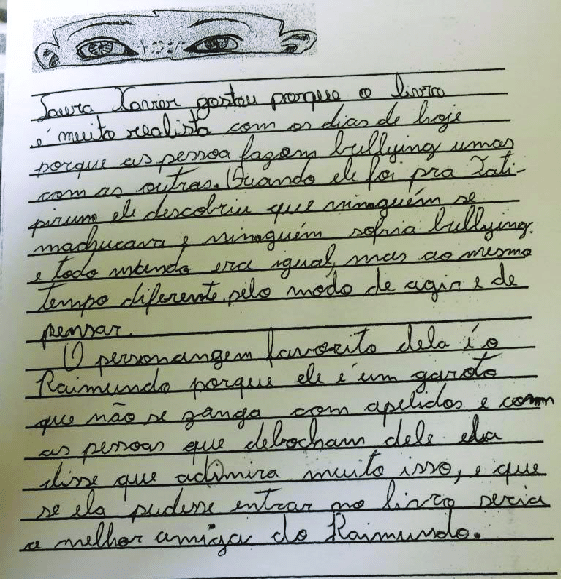 Laura Xavier gostou porque o livro
é muito realista com os dias de hoje
porque as pessoa fazem bullying umas
com as outras. Quando ele foi pra Tati-
pirum ele descobriu que ninguém se
machucava e ninguém sofria bullying.
e todo mundo era igual, mas ao mesmo
tempo diferente pelo modo de agir e de
pensar.
O personangem favorito dela é o
Raimundo porque ele é um garoto
que não se zanga com apelidos e com
as pessoas que debocham dele ela
disse que adimira muito isso, e que
se ela pudesse entrar no livro seria
a melhor amiga do Raimundo.